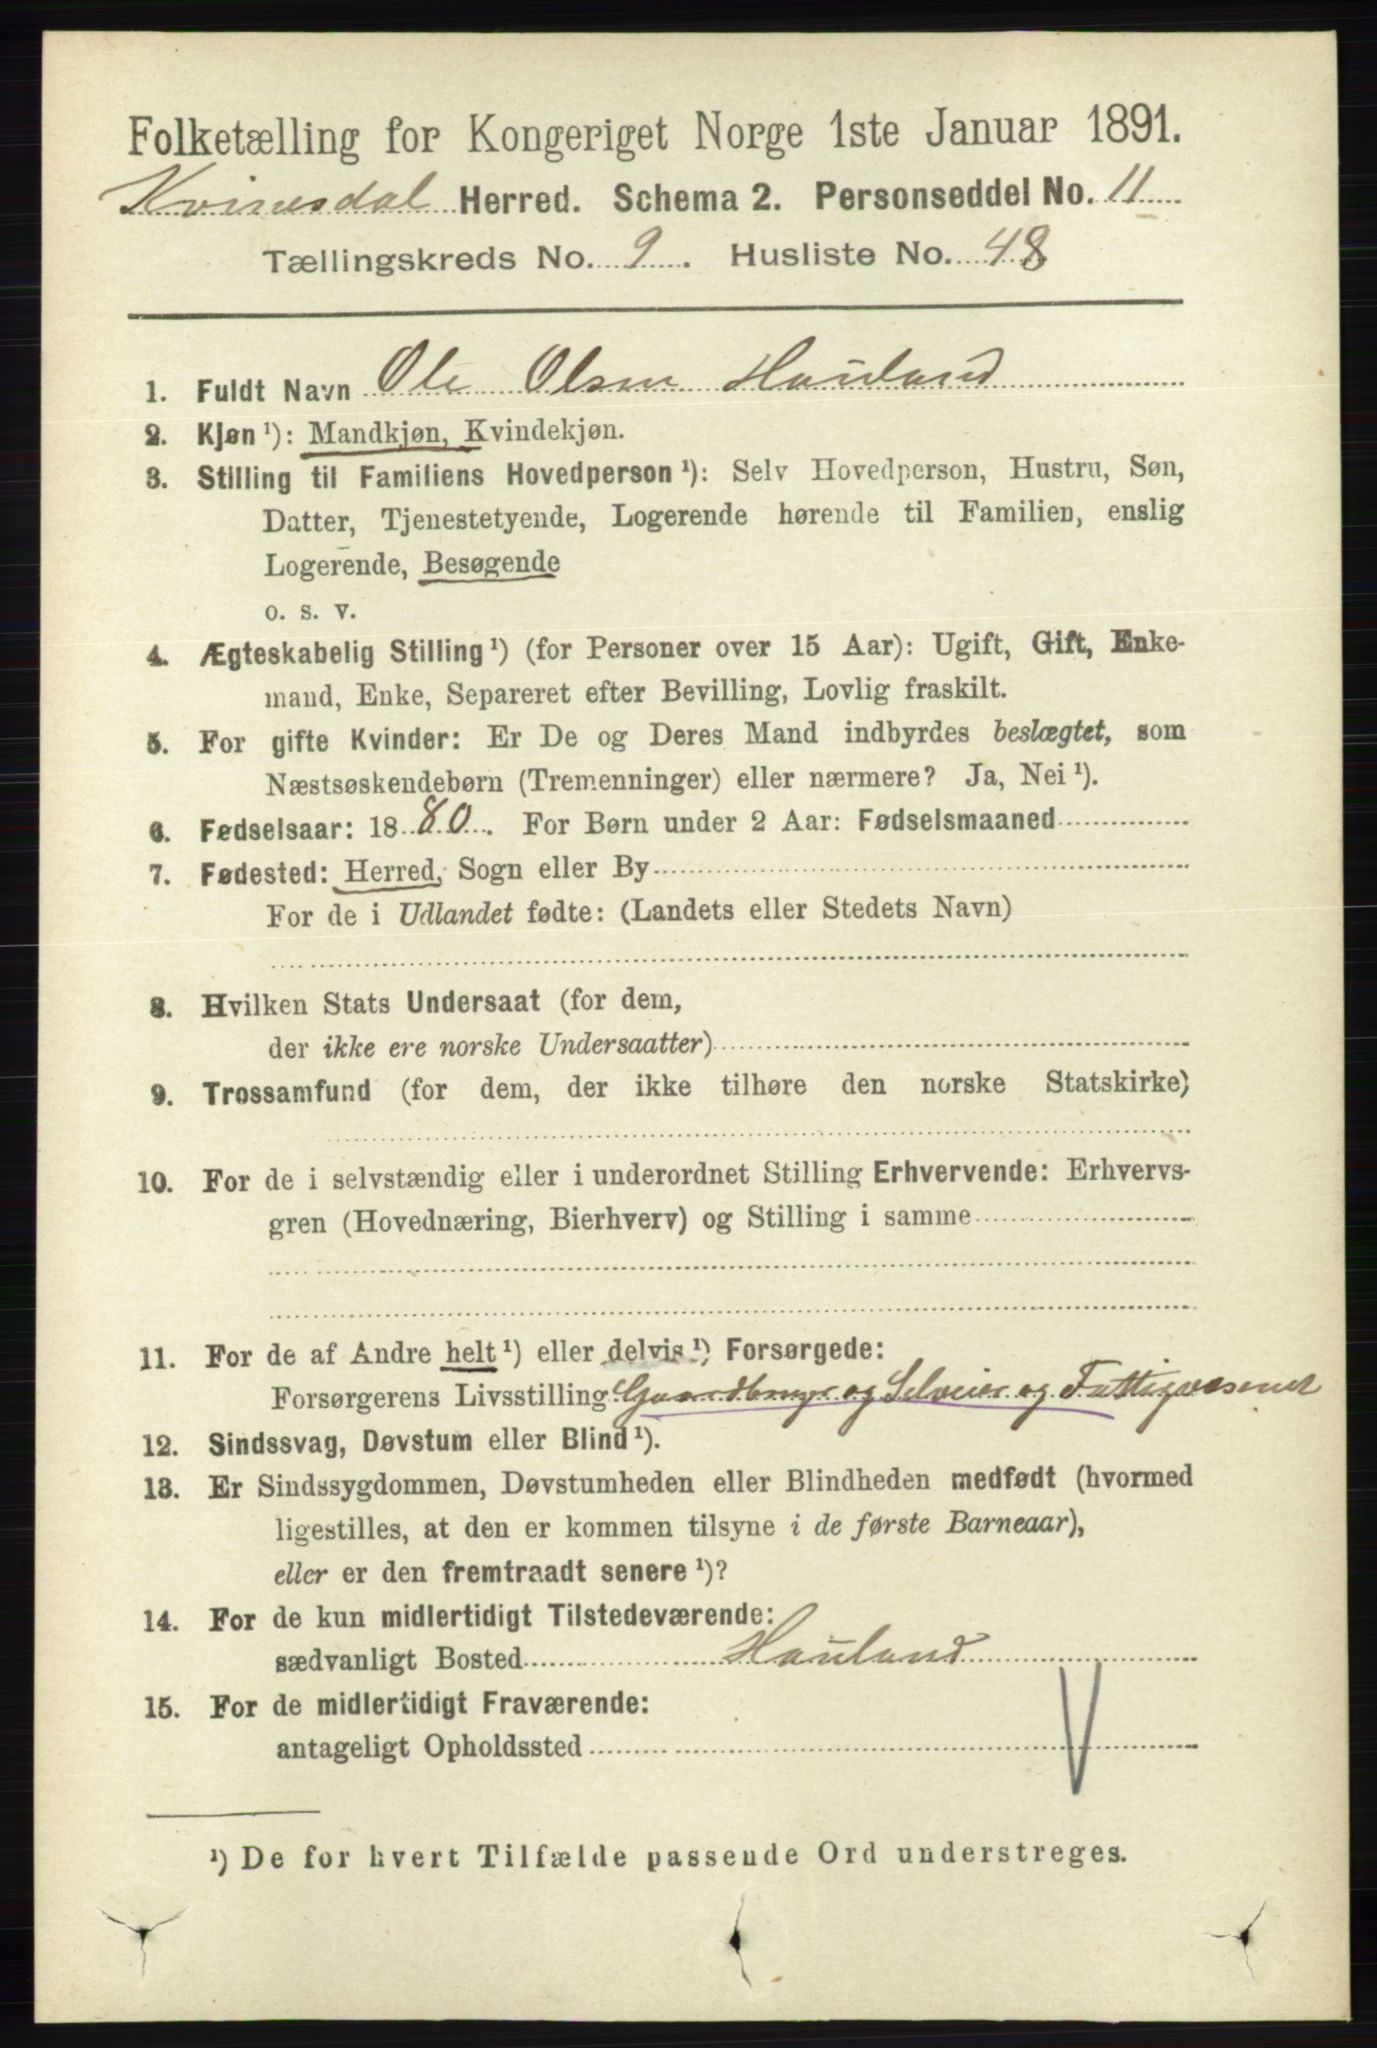 Folketælling for Kongeriget Norge 1ste Januar 1891.
Kvinesdal Herred. Schema 2. Personseddel No. 11
Tællingskreds No. 9. Husliste No. 48
1. Fuldt Navn Ole Olsen Hauland
2. Kjøn ¹): Mandkjøn, Kvindekjøn.
3. Stilling til Familiens Hovedperson ¹): Selv Hovedperson, Hustru, Søn,
Datter, Tjenestetyende, Logerende hørende til Familien, enslig
Logerende, Besøgende
o. s. v.
4. Ægteskabelig Stilling ¹) (for Personer over 15 Aar): Ugift, Gift, Enke-
mand, Enke, Separeret efter Bevilling, Lovlig fraskilt.
5. For gifte Kvinder: Er De og Deres Mand indbyrdes beslægtet, som
Næstsøskendebørn (Tremenninger) eller nærmere? Ja, Nei ¹).
6. Fødselsaar: 1880. For Børn under 2 Aar: Fødselsmaaned
7. Fødested: Herred, Sogn eller By
For de i Udlandet fødte: (Landets eller Stedets Navn)
8. Hvilken Stats Undersaat (for dem,
der ikke ere norske Undersaatter)
9. Trossamfund (for dem, der ikke tilhøre den norske Statskirke)
10. For de i selvstændig eller i underordnet Stilling Erhvervende: Erhvervs-
gren (Hovednæring, Bierhverv) og Stilling i samme
11. For de af Andre helt ¹) eller delvis ¹) Forsørgede:
Forsørgerens Livsstilling Gaardbruger og Selveier og Fattigvæsenet
12. Sindssvag, Døvstum eller Blind ¹).
13. Er Sindssygdommen, Døvstumheden eller Blindheden medfødt (hvormed
ligestilles, at den er kommen tilsyne i de første Barneaar),
eller er den fremtraadt senere ¹)?
14. For de kun midlertidigt Tilstedeværende:
sædvanligt Bosted Hauland
15. For de midlertidigt Fraværende:
antageligt Opholdssted
¹) De for hvert Tilfælde passende Ord understreges.